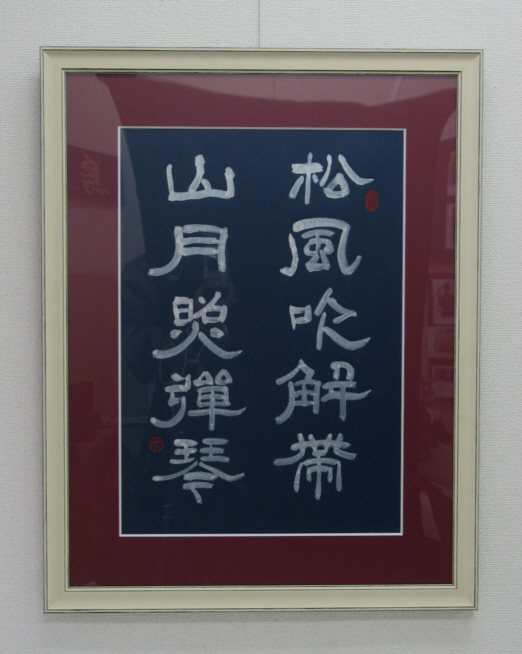 松風吹解帶
山月照彈琴